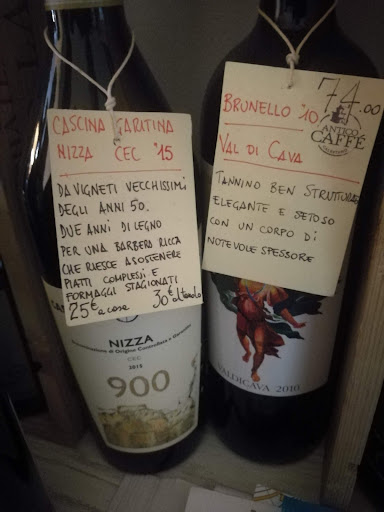 CASCINA GARITINA
NIZZA CEC '15
DA VIGNETI VECCHISSIMI
DEGLI ANNI 50.
DUE ANNI DI LEGNO
PER UNA BARBERA RICCA
CHE RIESCE A SOSTENERE
PIATTI COMPLESSI E
FORMAGGI STAGIONATI
25€ a casa 30€ al tavolo
NIZZA
Denominazione di Origine Controllata e Garantita
CEC
2015
900
74.00
BRUNELLO '10
ANTICO
CAFFÈ
VAL DI CAVA
TANNINO BEN STRUTTURATO
ELEGANTE E SETOSO
CON UN CORPO DI
NOTEVOLE SPESSORE
VALDICAVA 2010